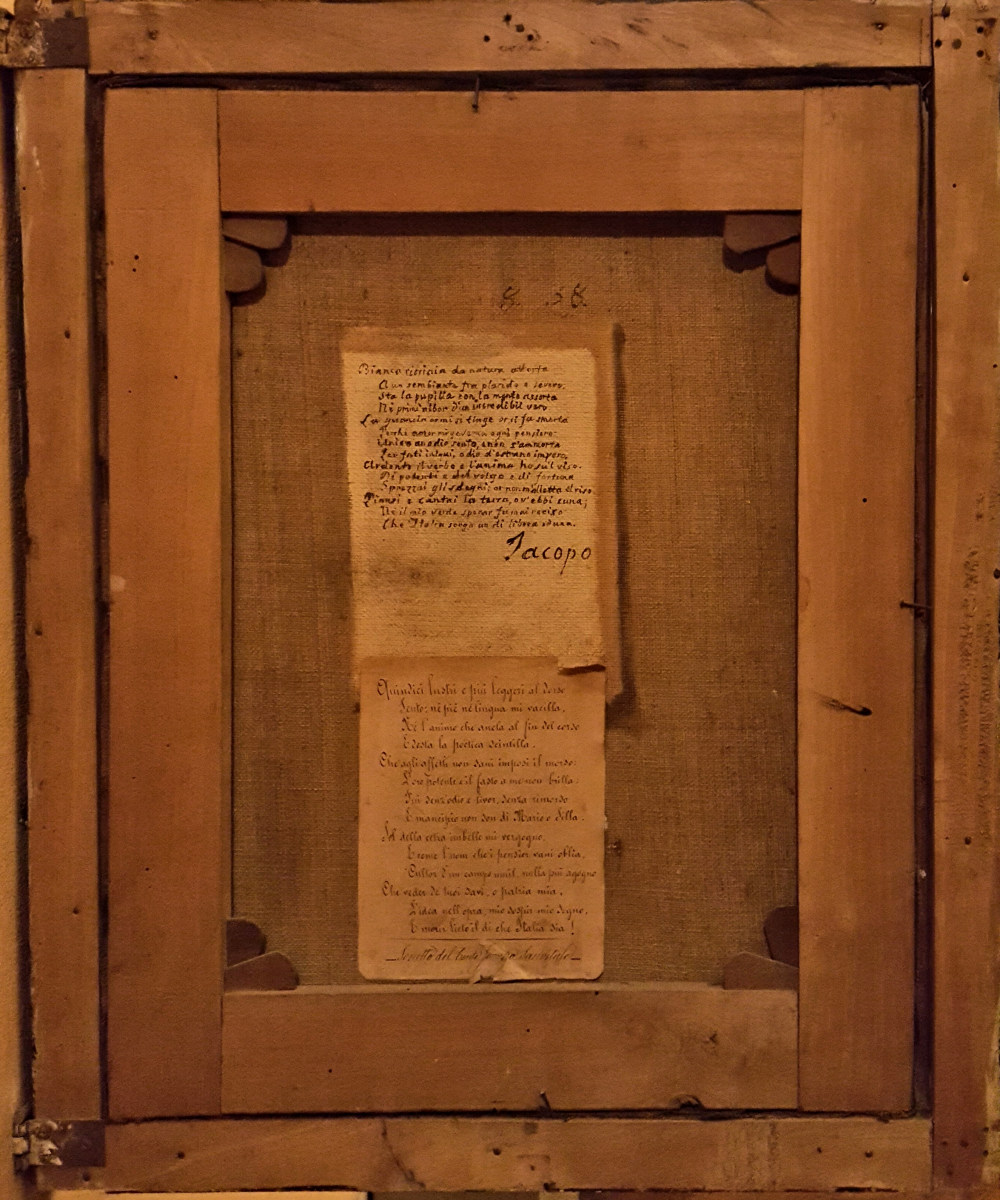 8. 58.
Bianco da natura
A un sembiante fra placido e severo,
Sta la pupilla con la mente assorta
Ne' primi albor d'un incredibil vero
La guancia ormai si tinge or si fa smorta
ogni pensiero:
Unico anodio sento, e non s'ammorza
Per fati iniqui, odio d'estrano impero.
Ardente il verbo e l'anima ho sul viso.
Di potenti e del volgo e di fortuna
Sprezzai gli sdegni; or non m'alletta il riso.
Piansi e cantai la terra, ov'ebbi cuna;
Né il mio verde sperar fu mai reciso
Che Italia sorga un di libera ed una.
Jacopo
Quindici lustri e più leggeri al dorso
Sento; nè piè nè lingua mi vacilla,
Nè l'animo che anela al fin del corso
E desta la poetica scintilla.
Che agli affetti non sani imposi il morso:
L'oro potente e il fasto a me non brilla:
Fui senz'odio e livor, senza rimorso
E mancipio non son di Mario o Silla.
Sol della cetra imbelle mi vergogno,
E come l'uom che i pensier vani oblia,
Cultor d'un campo umil, nulla più agogno
Che veder de' tuoi savi, o patria mia,
L'idea nell'opra, mio sospir mio sogno,
E morir lieto il dì che Italia sia!
Sonetto del Conte